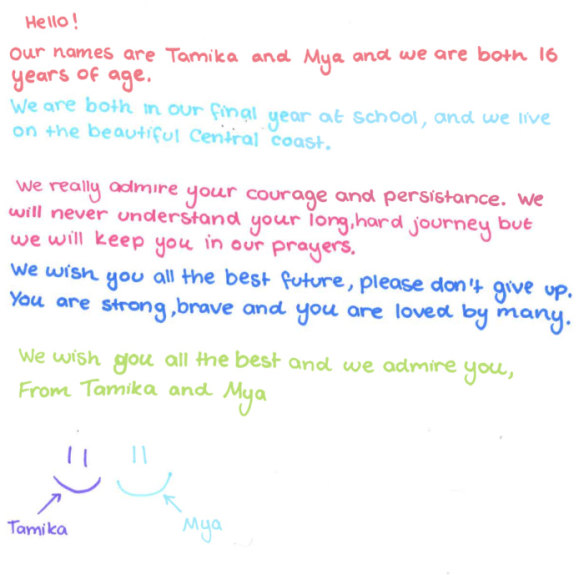 Hello!
Our names are Tamika and Mya and we are both 16
years of age.
We are both in our final year at school, and we live
on the beautiful Central coast.
We really admire your courage and persistance. We
will never understand your long, hard journey but
we will keep you in our prayers.
We wish you all the best future, please don't give up.
You are strong, brave and you are loved by many.
We wish you all the best and we admire you,
From Tamika and Mya
Tamika
Mya